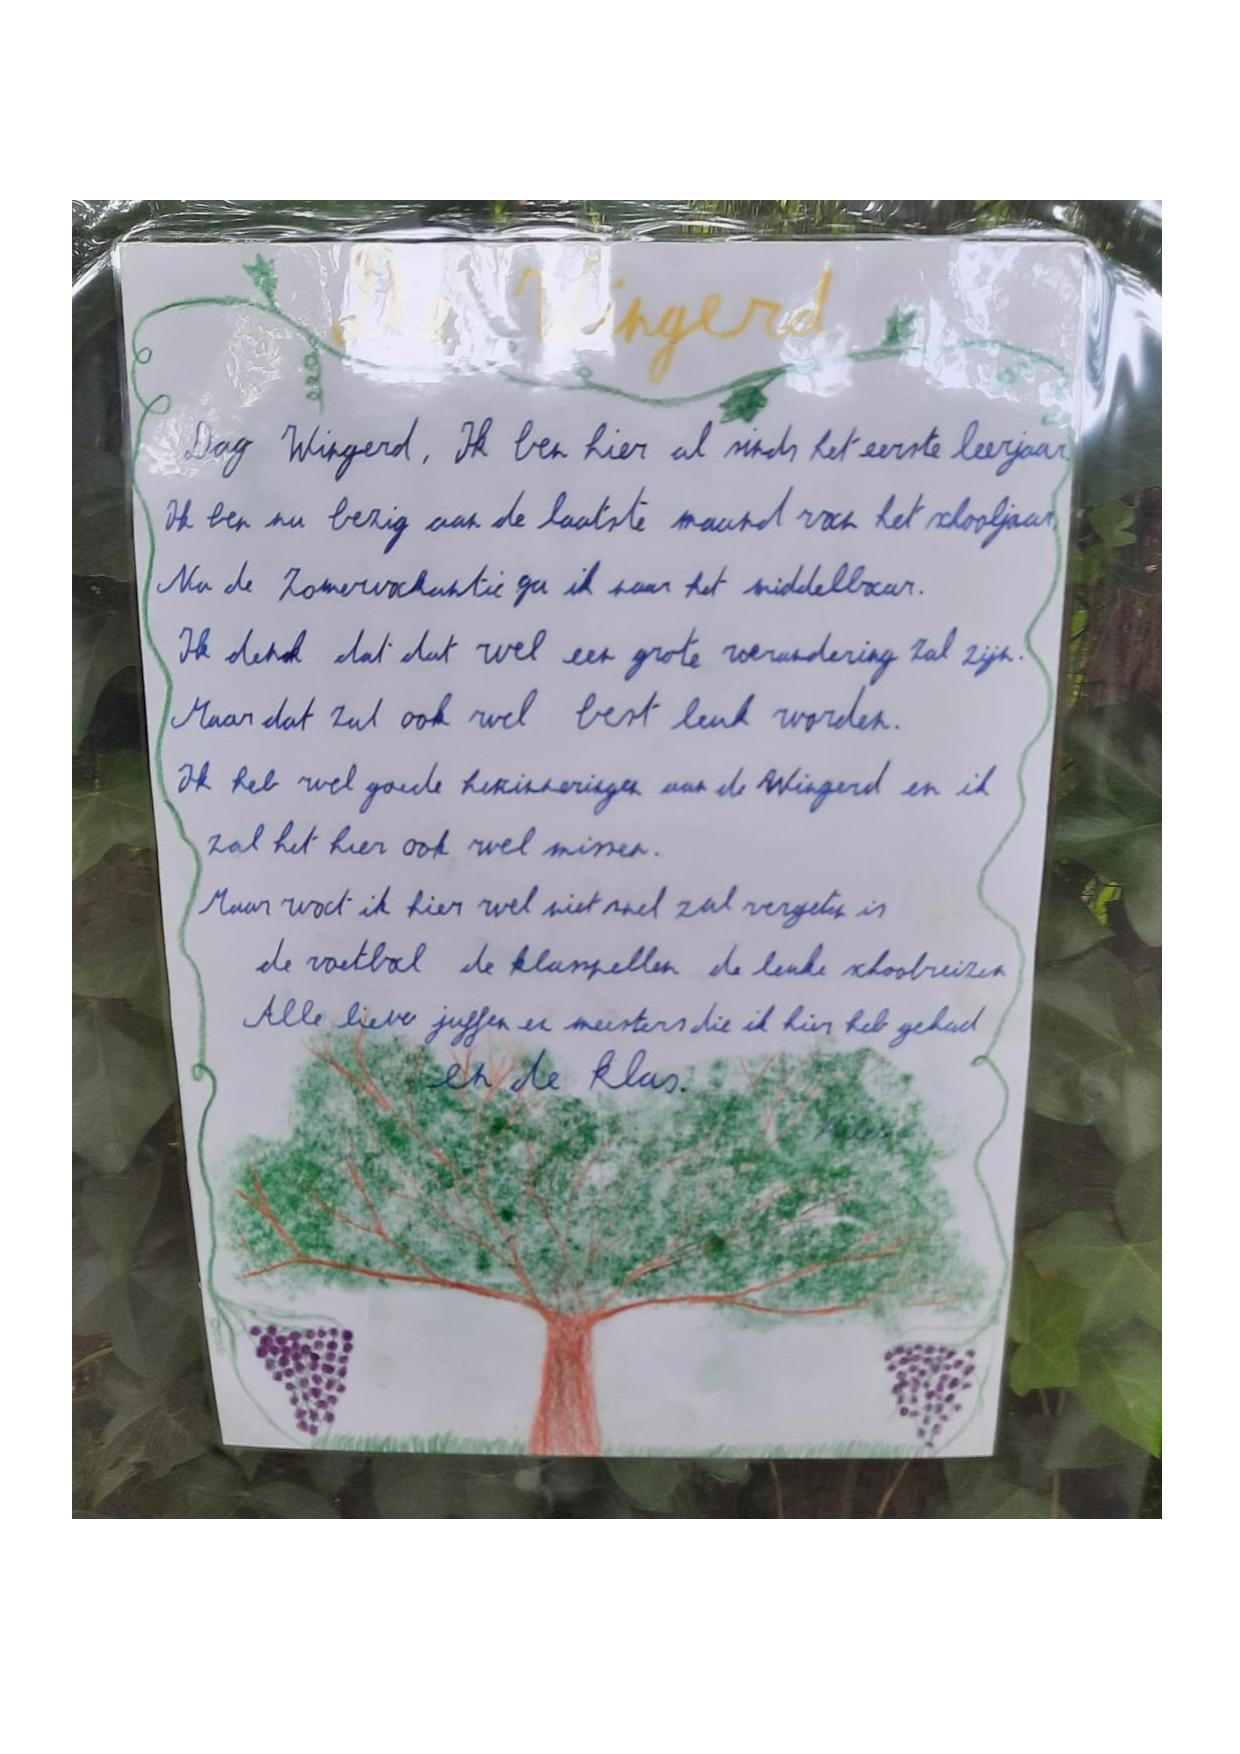 De Wingerd
Dag Wingerd, Ik ben hier al sinds het eerste leerjaar
Ik ben nu bezig aan de laatste maand van het schooljaar
Na de Zomervakantie ga ik naar het middelbaar.
Ik denk dat dat wel een grote verandering zal zijn.
Maar dat zal ook wel best leuk worden.
Ik heb wel goede herinneringen aan de Wingerd en ik
zal het hier ook wel missen.
Maar wat ik hier wel niet snel zal vergeten is
de voetbal de klasspellen de leuke schoolreizen
Alle lieve juffen en meesters die ik hier heb gehad
en de klas.